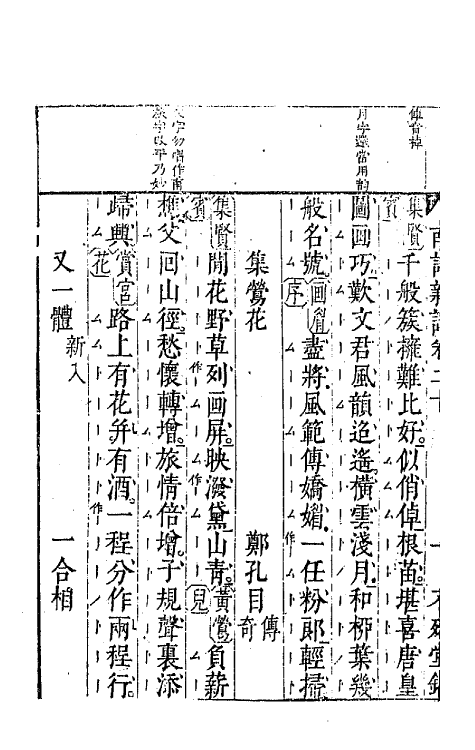 倬音棹
月字還當用韵
父字勿唱作甫
旅字改平乃妙
南詞新譜卷二十
一
不殊堂
集賢賓
千般簇擁難比好。似俏倬根苗。堪喜唐皇
圖画巧。歎文君風韻逍遙。橫雲淺月。和栁葉幾
般名號。
画眉序
盡將風範傳嬌媚。一任粉郎輕掃
集鶯花
鄭孔目傳奇
集賢賓
閒花野草列画屏。映潑黛山青。
黃鶯兒
負薪
樵父回山徑。愁懷轉增。旅情倍增。子規聲裏添
歸興
賞宮花
路上有花并有酒。一程分作兩程行。
又一體
新入
一合相